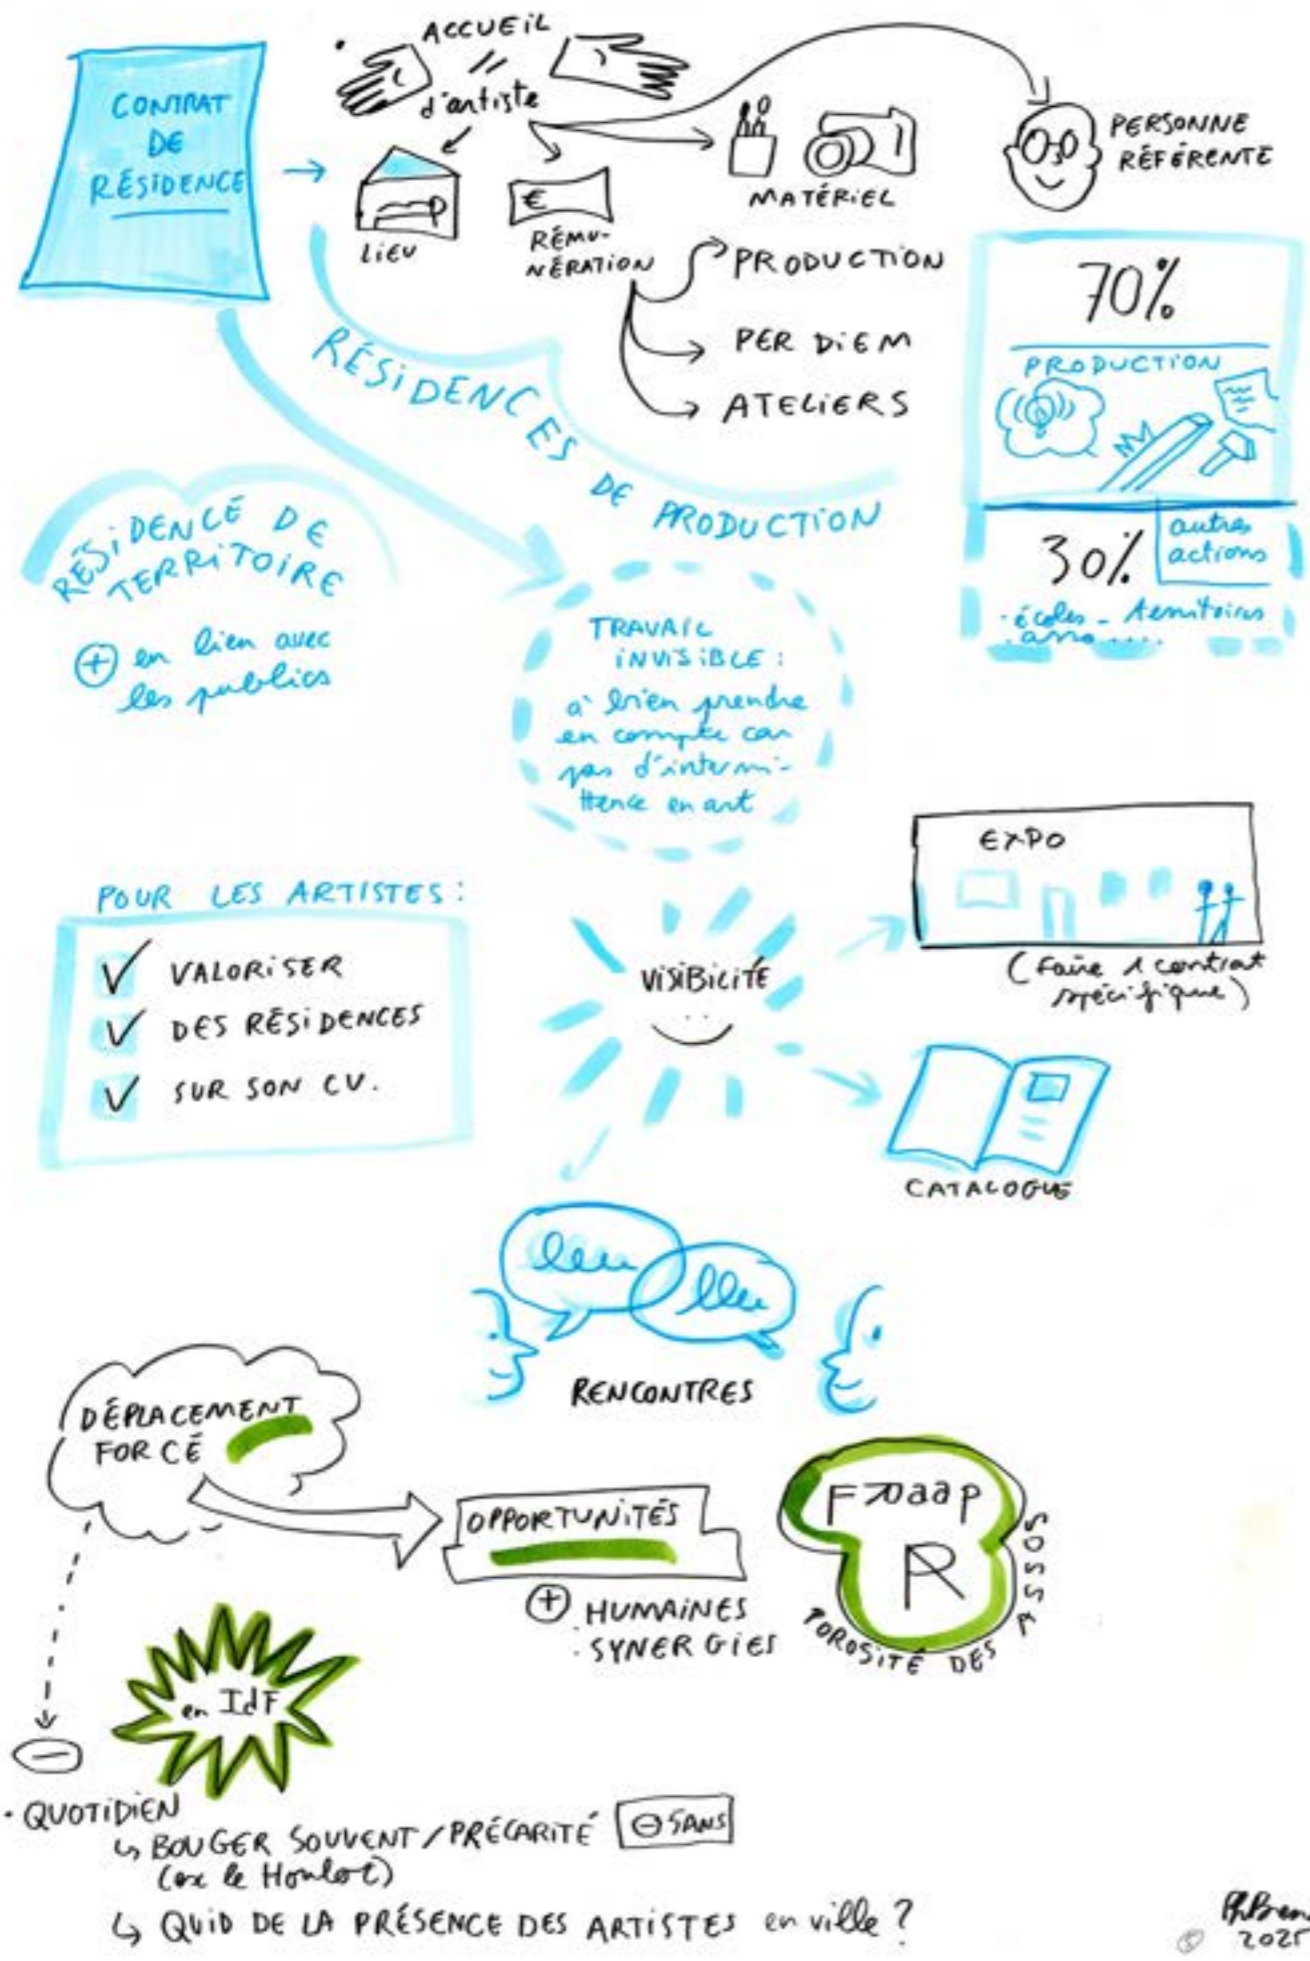 CONTRAT
DE
RÉSIDENCE
ACCUEIL
d'artiste
LIEU
€
RÉMU-
NÉRATION
MATÉRIEL
PERSONNE
RÉFÉRENTE
PRODUCTION
PER DIEM
ATELIERS
70%
PRODUCTION
30%
autres
actions
écoles - territoires
asso ....
RÉSIDENCES DE PRODUCTION
RÉSIDENCE DE
TERRITOIRE
+ en lien avec
les publics
TRAVAIL
INVISIBLE :
à bien prendre
en compte car
pas d'intermi-
ttence en art
POUR LES ARTISTES :
✓ VALORISER
✓ DES RÉSIDENCES
✓ SUR SON CV.
VISIBILITÉ
EXPO
(Faire 1 contrat
spécifique)
CATALOGUE
RENCONTRES
DÉPLACEMENT
FORCÉ
OPPORTUNITÉS
+ . HUMAINES
. SYNERGIES
R
POROSITÉ DES ASSOS
en IdF
-
· QUOTIDIEN
↳ BOUGER SOUVENT / PRÉCARITÉ
⊖ 5 ANS
(ex le Houloc)
↳ QUID DE LA PRÉSENCE DES ARTISTES en ville ?
2025